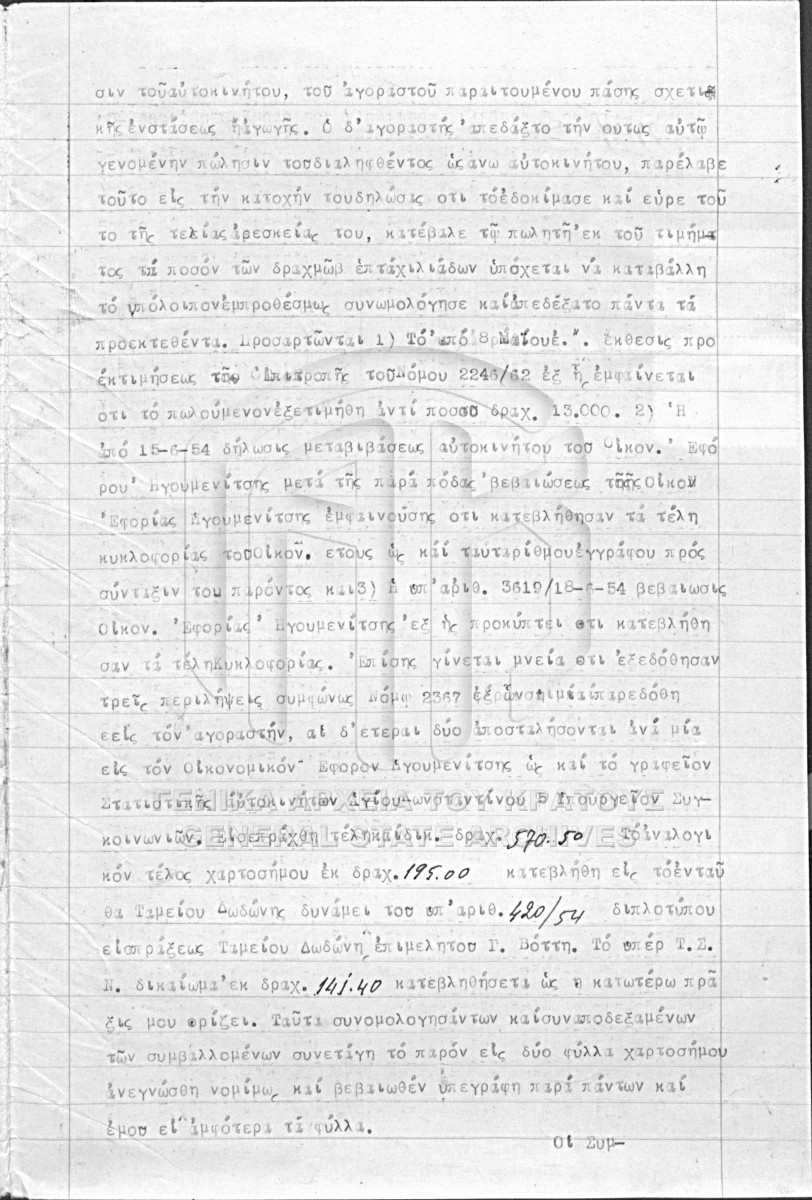 σιν τοῦαὐτοκινήτου, τοῦ ἀγοραστοῦ παραιτουμένου πάσης σχετι
κῆς ἐνστάσεως ἤἀγωγῆς. Ὁ δ'ἀγοραστής 'απεδάξτο τήν ουτως αὐτῷ
γενομένην πώλησιν τουδιαληφθέντος ὡςἄνω αὐτοκινήτου, παρέλαβε
τοῦτο εἰς τήν κατοχήν τουδηλώσις οτι τόἐδοκίμασε καί εὗρε τοῦ
το τῆς τελείας ἀρεσκείας του, κατέβαλε τῷ πωλητῇ 'εκ τοῦ τιμήμα
τος τά ποσόν τῶν δραχμῶβ ἑπτάχιλιάδων ὑπόχεται νά καταβάλλη
τό ὑπόλοιπονἐμπροθέσμως συνωμολόγησε καίἀπεδέξατο πάντα τά
προεκτεθέντα. Προσαρτῶνται 1) Τό 'από 8 Μαΐουἐ.ἔ. ἐκθεσις προ
ἐκτιμήσεως τῆς Ἐπιτροπῆς τοῦ Νόμου 2246/62 ἐξ ἧς ἐμφαίνεται
οτι τό πωλούμενονἐξετιμήθη ἀντί ποσοῦ δραχ. 13.000. 2) Ἡ
ἀπό 15-6-54 δήλωσις μεταβιβάσεως αὐτοκινήτου τοῦ Οἰκον. 'Εφό
ρου 'Ηγουμενίτσης μετά τῆς παρά πόδας 'βεβαιώσεως τῆς Οἰκον
'Εφορίας Ηγουμενίτσης ἐμφαινούσης οτι κατεβλήθησαν τά τέλη
κυκλοφορίας τοῦΟἰκον. ετους ὡς καί ταυταρίθμουἐγγράφου πρός
σύνταξιν του παρόντος και3) Ἡ ὑπ'ἀριθ. 3619/18-6-54 βεβαιωσις
Οἰκον. 'Εφορίας 'Ηγουμενίτσης 'εξ ἧς προκύπτει οτι κατεβλήθη
σαν τά τέληΚυκλοφορίας. 'Επίσης γίνεται μνεία οτι ἐξεδόθησαν
τρεῖς περιλήψεις συμφώνως Νόμῳ 2367 ἐξ ὧν ἡ μίαπαρεδόθη
εεἰς τόν 'αγοραστήν, αἱ δ'ετεραι δύο ἀποσταλήσονται ἀνά μία
εἰς τόν Οἰκονομικόν Εφορον Ηγουμενίτσης ὡς καί τό γραφεῖον
Στατιστικῆς Αὐτοκινήτων Ἁγίου Κωνσταντίνου 5 Υπουργεῖον Συγ-
κοινωνιῶν. Εἰσεπράχθη τέληκαίδικ. δραχ. 570.50 Τόἀναλογι
κόν τέλος χαρτοσήμου ἐκ δραχ. 195.00 κατεβλήθη εἰς τόἐνταῦ
θα Ταμείου Δωδώνης δυνάμει του ὑπ'αριθ. 420/54 διπλοτύπου
εἰσπράξεως Ταμείου Δωδώνη ἐπιμελητοῦ Γ. Βόττη. Τό ὑπέρ Τ.Σ.
Ν. δικαίωμα 'εκ δραχ. 141.40 κατεβληθήσετα ὡς η κατωτέρω πρᾶ
ξις μου ορίζει. Ταῦτα συνομολογησάντων καίσυναποδεξαμένων
τῶν συμβαλλομένων συνετάγη τό παρόν εἰς δύο φύλλα χαρτοσήμου
ἀνεγνώσθη νομίμως καί βεβαιωθέν ὑπεγράφη παρά πάντων καί
ἐμοῦ εἰ ἀμφότερα τά φύλλα.
Οἱ Συμ-
ΓΕΝΙΚΑ ΑΡΧΕΙΑ ΤΟΥ ΚΡΑΤΟΥΣ
GENERAL STATE ARCHIVES